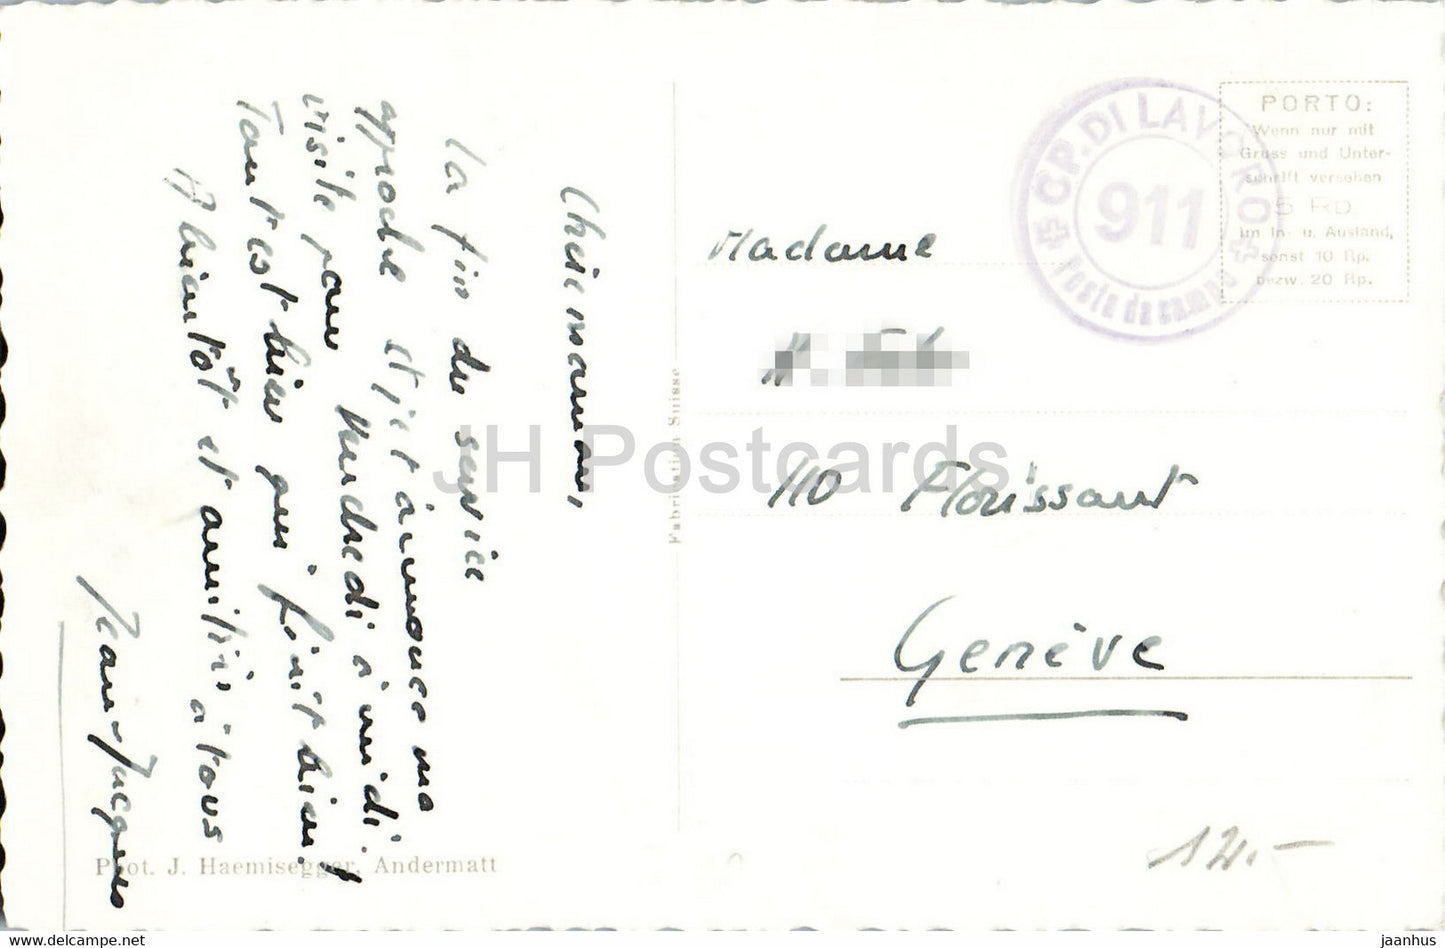 Chère maman,
La fin du service
approche et je t'annonce ma
visite pour vendredi à midi.
Tout est bien qui finit bien !
A bientôt et amitiés à tous
Jean-Jacques
Phot. J. Haemisegger, Andermatt
Fabrication Suisse
JH Postcards
+ CP. DI LAVORO +
911
Posta da campo
PORTO:
Wenn nur mit
Gruss und Unter-
schrift versehen
5 Rp.
im In- u. Ausland,
sonst 10 Rp.
bezw. 20 Rp.
Madame
110 Florissant
Genève
12.-
www.delcampe.net
jaanhus